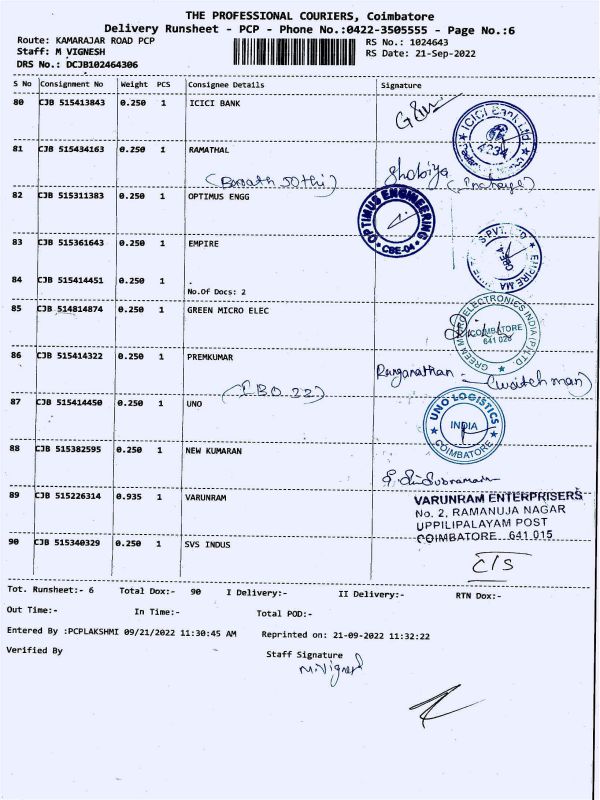 THE PROFESSIONAL COURIERS, Coimbatore
Delivery Runsheet - PCP - Phone No.:0422-3505555 - Page No.:6
Route: KAMARAJAR ROAD PCP
RS No.: 1024643
Staff: M VIGNESH
RS Date: 21-Sep-2022
DRS No.: DCJB102464306
S No Consignment No Weight PCS Consignee Details Signature
80 CJB 515413843 0.250 1 ICICI BANK
ICICI Bank Ltd
4234
81 CJB 515434163 0.250 1 RAMATHAL
Shobiya
82 CJB 515311383 0.250 1 OPTIMUS ENGG
OPTIMUS ENGINEERING
CBE-04
83 CJB 515361643 0.250 1 EMPIRE
84 CJB 515414451 0.250 1
No.Of Docs: 2
85 CJB 514814874 0.250 1 GREEN MICRO ELEC
GREEN MICROELECTRONICS INDIA (P) LTD.
COIMBATORE
641 028
86 CJB 515414322 0.250 1 PREMKUMAR
Ranganathan - (watch man)
87 CJB 515414450 0.250 1 UNO
UNO LOGISTICS
INDIA
COIMBATORE
88 CJB 515382595 0.250 1 NEW KUMARAN
89 CJB 515226314 0.935 1 VARUNRAM
VARUNRAM ENTERPRISERS
No. 2, RAMANUJA NAGAR
UPPILIPALAYAM POST
COIMBATORE 641 015
90 CJB 515340329 0.250 1 SVS INDUS
C/S
Tot. Runsheet:- 6 Total Dox:- 90 I Delivery:- II Delivery:- RTN Dox:-
Out Time:- In Time:- Total POD:-
Entered By :PCPLAKSHMI 09/21/2022 11:30:45 AM Reprinted on: 21-09-2022 11:32:22
Verified By
Staff Signature
M.Vignesh